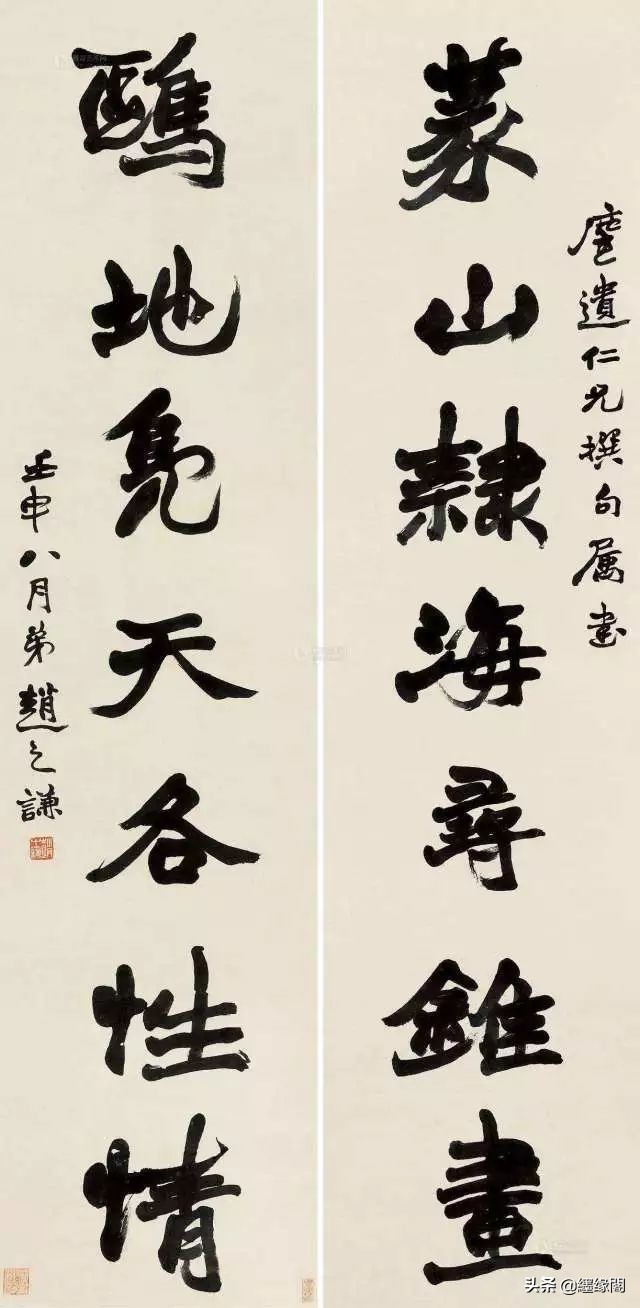 塵遺仁兄撰句属書
篆山隸海尋錐畫
鷗地鳧天各性情
壬申八月弟趙之謙
头条 @纒缘閣